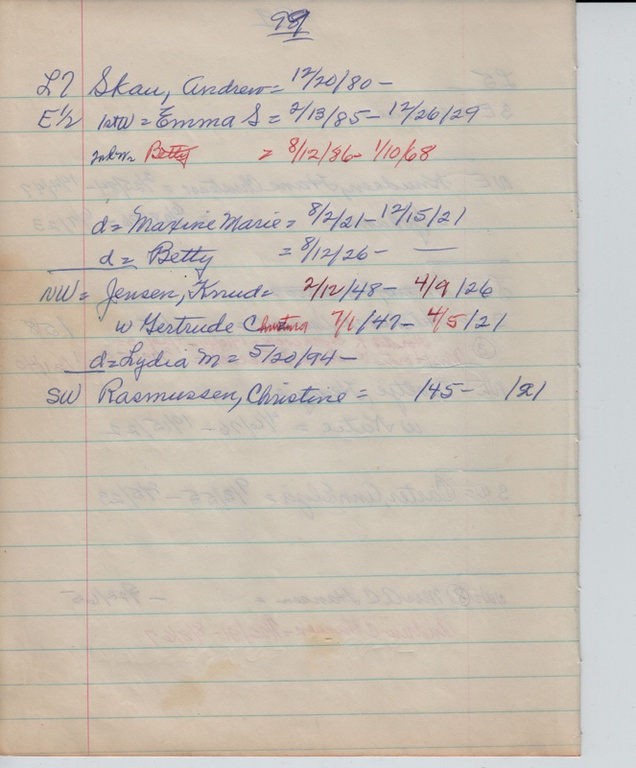 98
L7 Skau, Andrew = 12/20/80 -
E 1/2 1st W = Emma S = 2/13/85 - 12/26/29
2nd W = Betty = 8/12/86 - 1/10/68
d = Maxine Marie = 8/2/21 - 12/15/21
d = Betty = 8/12/26 - —
NW = Jensen, Knud = 2/12/48 - 4/9/26
w Gertrude Christina 7/1/47 - 4/5/21
d = Lydia M = 5/20/94 -
SW Rasmussen, Christine = /45 - /21